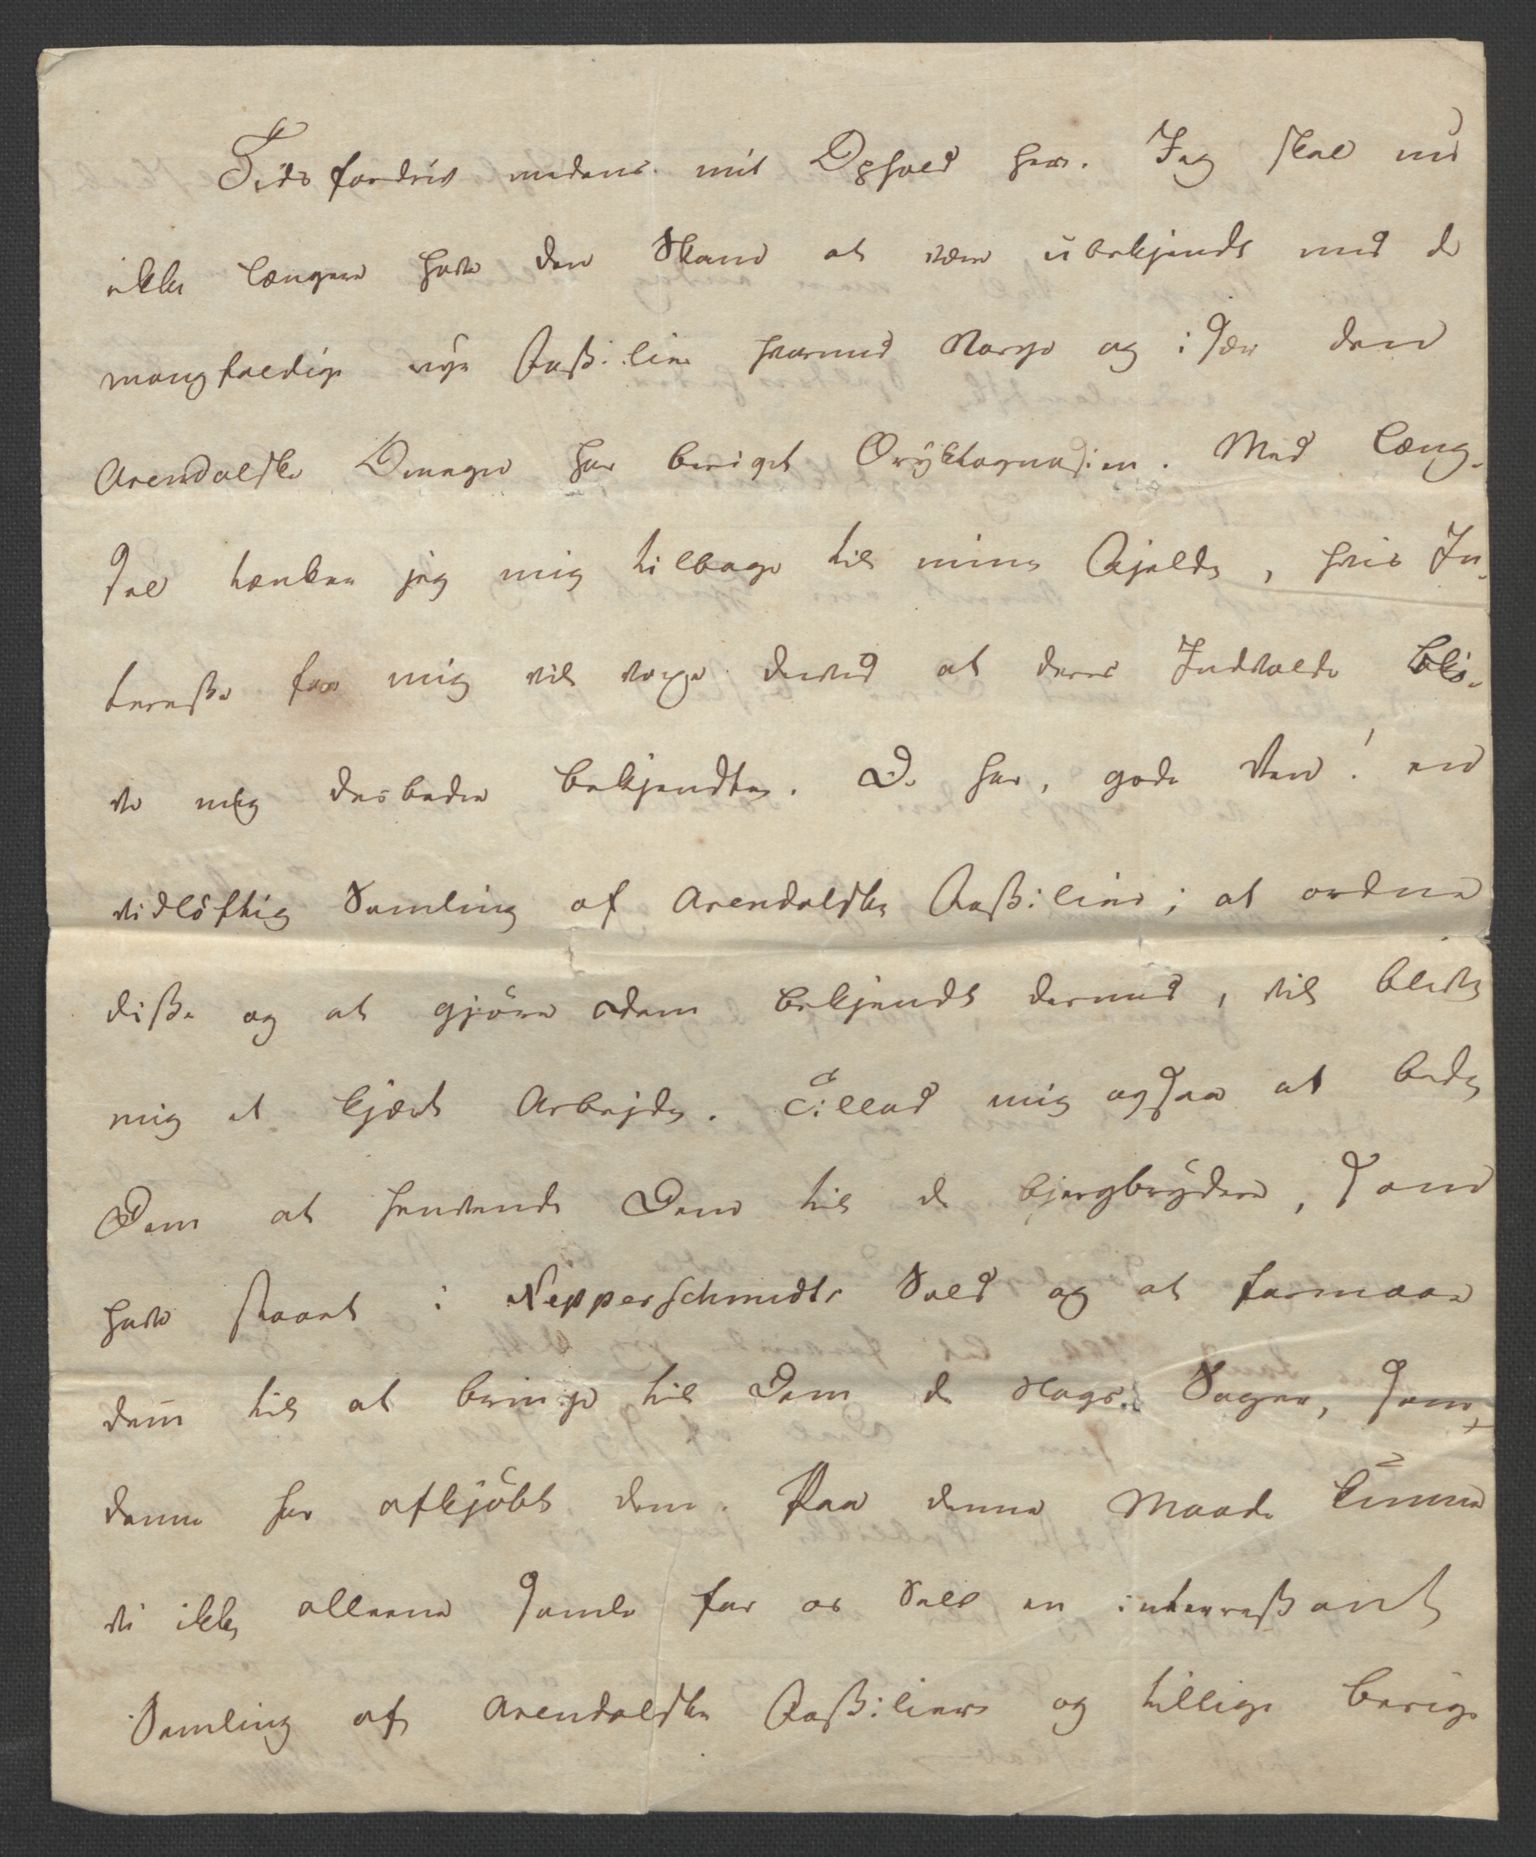 Tidsfordriv medens mit Ophold her. Jeg skal nu
ikke længere have den Skam at være ubekjendt med de
mangfoldige nye Foßilier hvormed Norge og i sær den
Arendalske Omegn har beriget Oryktognosien. Med Læng-
sel tænker jeg mig tilbage til mine Fjelde, hvis In-
tereße for mig vil voxe derved at deres Indvolde bli-
ve mig desbedre bekjendte. De har, gode Ven! en
vidløftig Samling af Arendalske Foßilier; at ordne
diße og at gjøre Dem bekjendt dermed, vil blive
mig et kjært Arbejde. Tillad mig ogsaa at bede
Dem at henvende Dem til de bjergbrydere, som
have staaet i Nepperschmidts Sold og at formaae
dem til at bringe til Dem de Slags Sager, som
denne har afkjøbt dem. Paa denne Maade kunne
vi ikke alleene samle for os selv en intereßant
Samling af Arendalske Foßilier og tillige berige